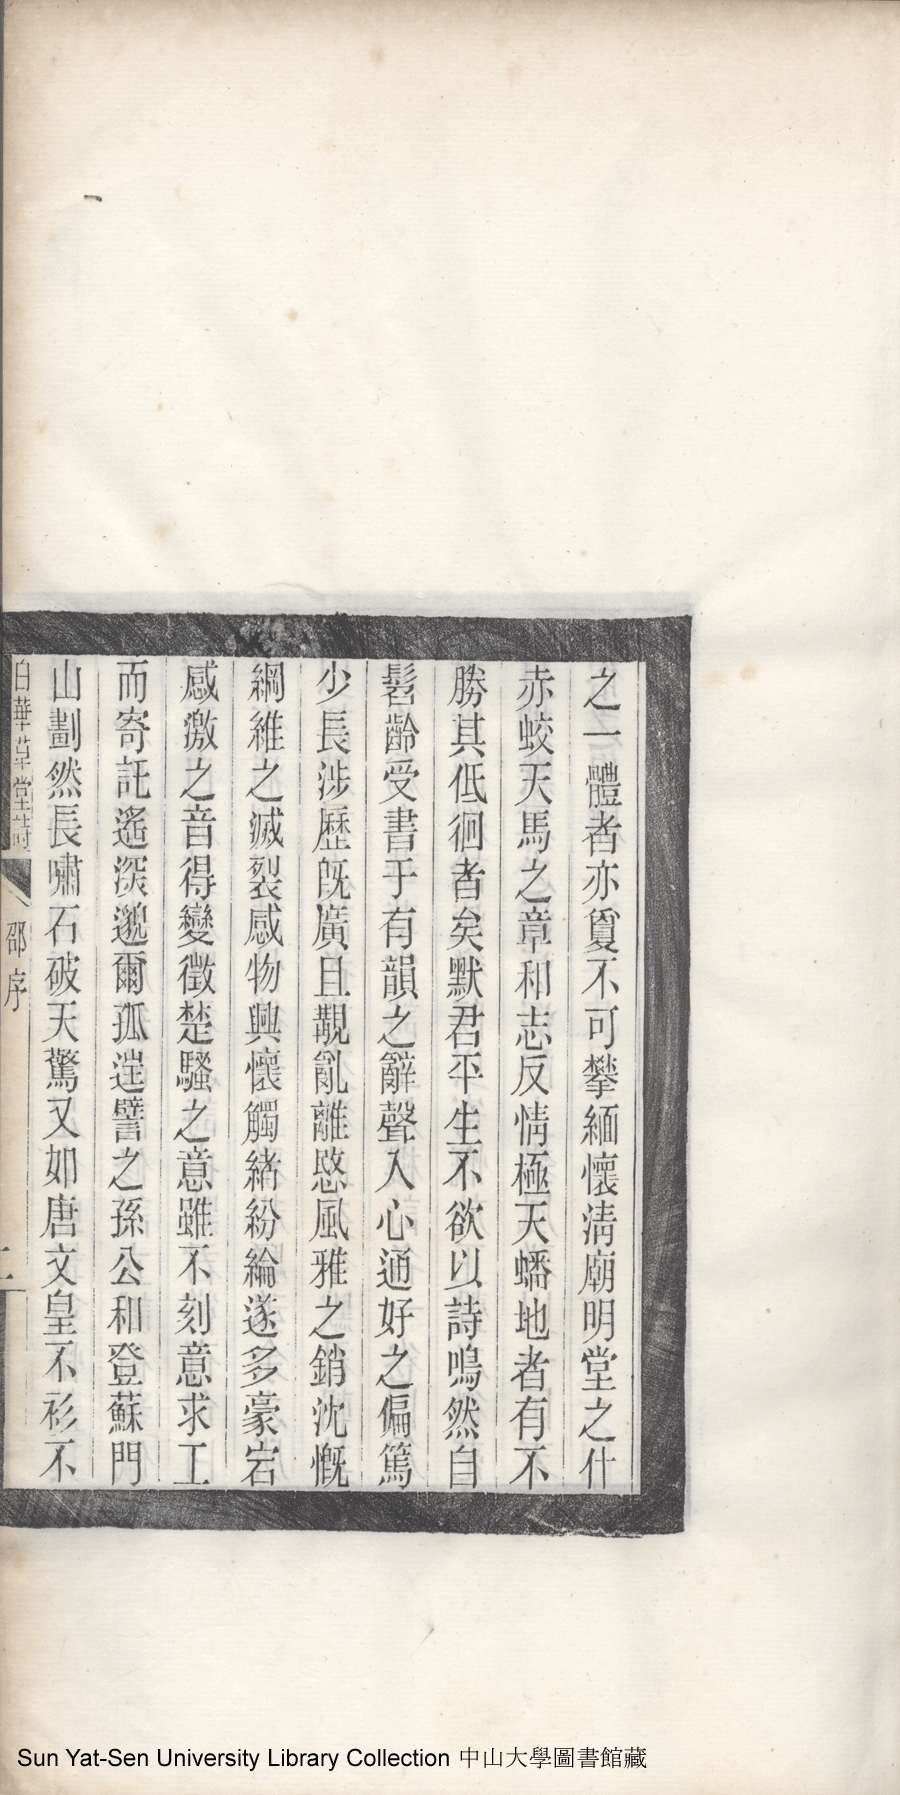 之一體者亦敻不可攀緬懷淸廟明堂之什
赤蛟天馬之章和志反情極天蟠地者有不
勝其低徊者矣默君平生不欲以詩鳴然自
髫齡受書于有韻之辭聲入心通好之偏篤
少長涉歷旣廣且覯亂離愍風雅之銷沈慨
綱維之滅裂感物興懷觸緖紛綸遂多豪宕
感激之音得變徵楚騷之意雖不刻意求工
而寄託遙深邈爾孤迥譬之孫公和登蘇門
山劃然長嘯石破天驚又如唐文皇不衫不
白華草堂詩 邵序 二
Sun Yat-Sen University Library Collection 中山大學圖書館藏